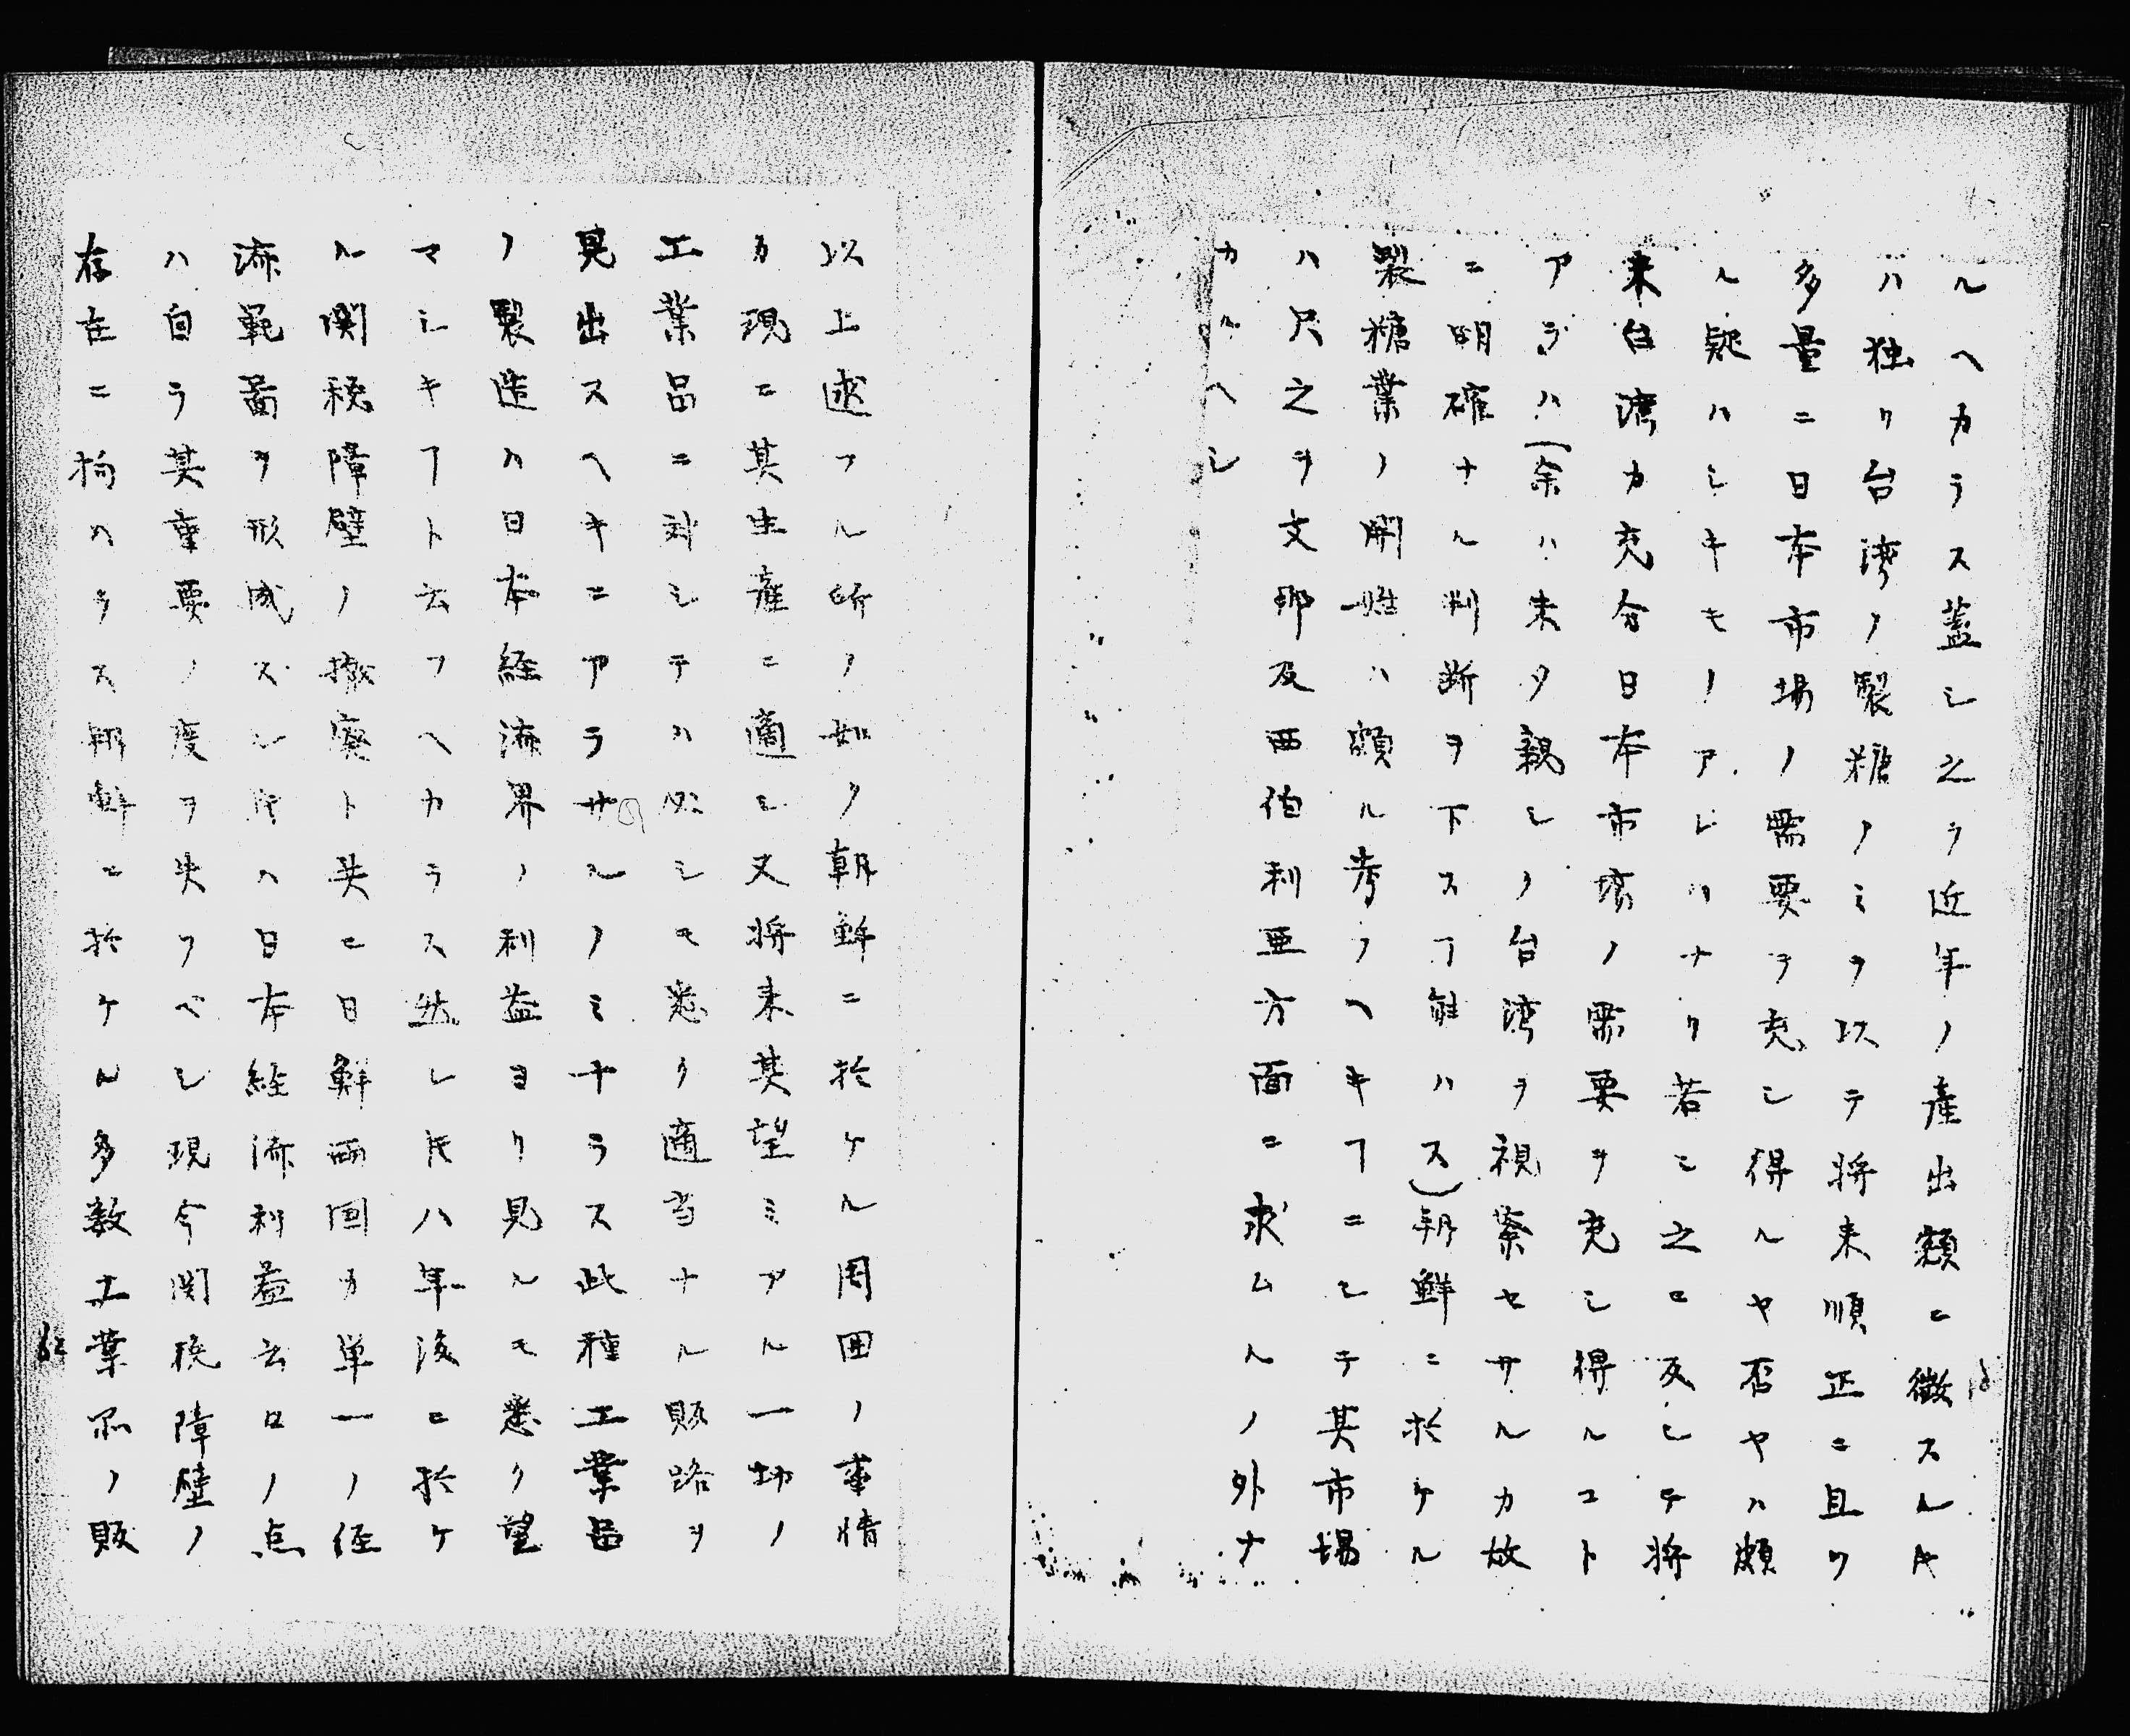 ルヘカラス蓋シ之ヲ近年ノ産出額ニ徴スルキ
ハ独リ台湾ノ製糖ノミヲ以テ将来順正ニ且ツ
多量ニ日本市場ノ需要ヲ充シ得ルヤ否ヤハ頗
ル疑ハシキモノアレハナリ若シ之ニ反シテ将
来台湾カ充分日本市場ノ需要ヲ充シ得ルコト
アラハ(余ハ未タ親シク台湾ヲ視察セサルカ故
ニ明確ナル判断ヲ下スヿ能ハス)朝鮮ニ於ケル
製糖業ノ開始ハ頗ル考フヘキヿニシテ其市場
ハ只之ヲ支那及西伯利亜方面ニ求ムルノ外ナ
カルヘシ
以上述フル所ノ如ク朝鮮ニ於ケル周囲ノ事情
カ現ニ其生産ニ適シ又将来其望ミアル一切ノ
工業品ニ対シテハ必シモ悉ク適当ナル販路ヲ
見出スヘキニアラサルノミナラス此種工業品
ノ製造ハ日本経済界ノ利益ヨリ見ルモ悉ク望
マシキヿト云フヘカラス然レ𪜈ハ年後ニ於ケ
ル関税障壁ノ撤廃ト共ニ日鮮両国カ単一ノ経
済範囲ヲ形成スルキハ日本経済利益云ロノ点
ハ自ラ其重要ノ度ヲ失フベシ現今関税障壁ノ
存在ニ拘ハラス朝鮮ニ於ケル多数工業品ノ販